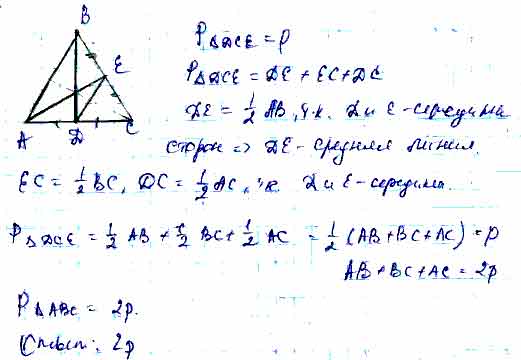 B
E
A D C
P△DCE = p
P△DCE = DE + EC + DC
DE = 1/2 AB, т.к. D и E - середины
сторон => DE - средняя линия.
EC = 1/2 BC, DC = 1/2 AC, т.к. D и E - середины.
P△DCE = 1/2 AB + 1/2 BC + 1/2 AC = 1/2 (AB + BC + AC) = p
AB + BC + AC = 2p
P△ABC = 2p.
Ответ: 2p